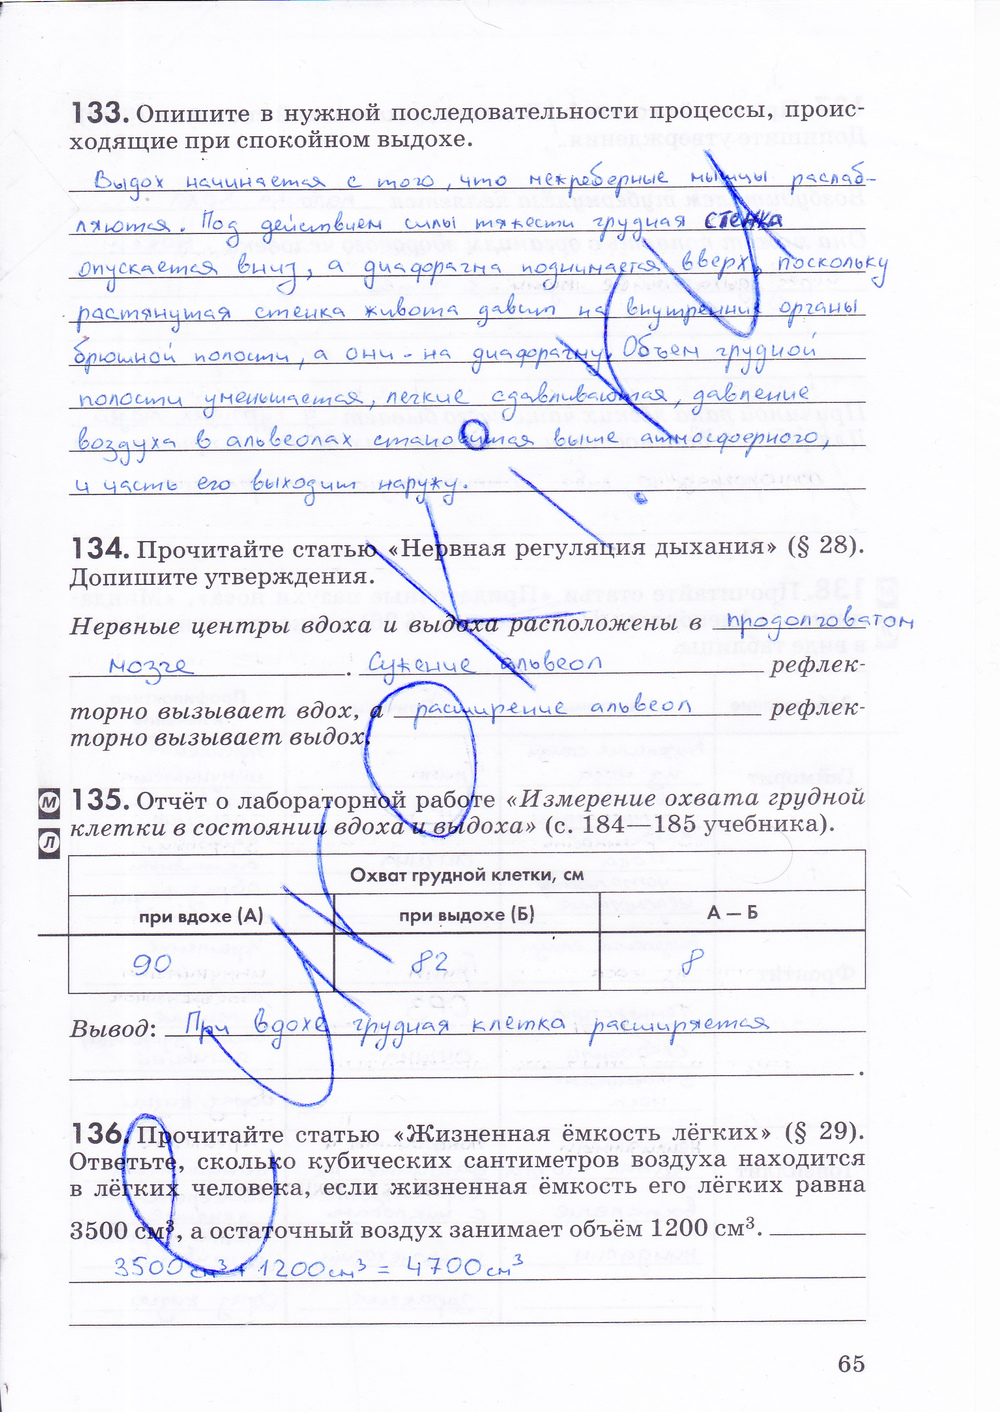 133. Опишите в нужной последовательности процессы, проис-
ходящие при спокойном выдохе.
Выдох начинается с того, что межреберные мышцы расслаб-
ляются. Под действием силы тяжести грудная стенка
опускается вниз, а диафрагма поднимается вверх, поскольку
растянутая стенка живота давит на внутренние органы
брюшной полости, а они - на диафрагму. Объем грудной
полости уменьшается, легкие сдавливаются, давление
воздуха в альвеолах становится выше атмосферного,
и часть его выходит наружу.
134. Прочитайте статью «Нервная регуляция дыхания» (§ 28).
Допишите утверждения.
Нервные центры вдоха и выдоха расположены в продолговатом
мозге. Сужение альвеол рефлек-
торно вызывает вдох, а расширение альвеол рефлек-
торно вызывает выдох.
М
Л
135. Отчёт о лабораторной работе «Измерение охвата грудной
клетки в состоянии вдоха и выдоха» (с. 184—185 учебника).
Охват грудной клетки, см
при вдохе (А) при выдохе (Б) А — Б
90 82 8
Вывод: При вдохе грудная клетка расширяется
.
136. Прочитайте статью «Жизненная ёмкость лёгких» (§ 29).
Ответьте, сколько кубических сантиметров воздуха находится
в лёгких человека, если жизненная ёмкость его лёгких равна
3500 см³, а остаточный воздух занимает объём 1200 см³.
3500 см³ + 1200 см³ = 4700 см³
65